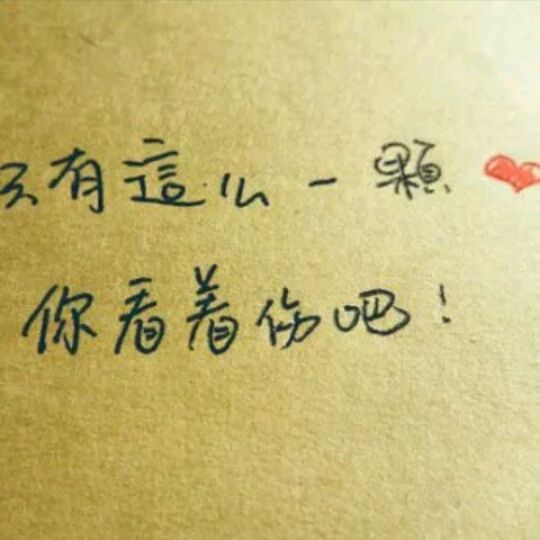 只有這么一顆❤
你看着伤吧！